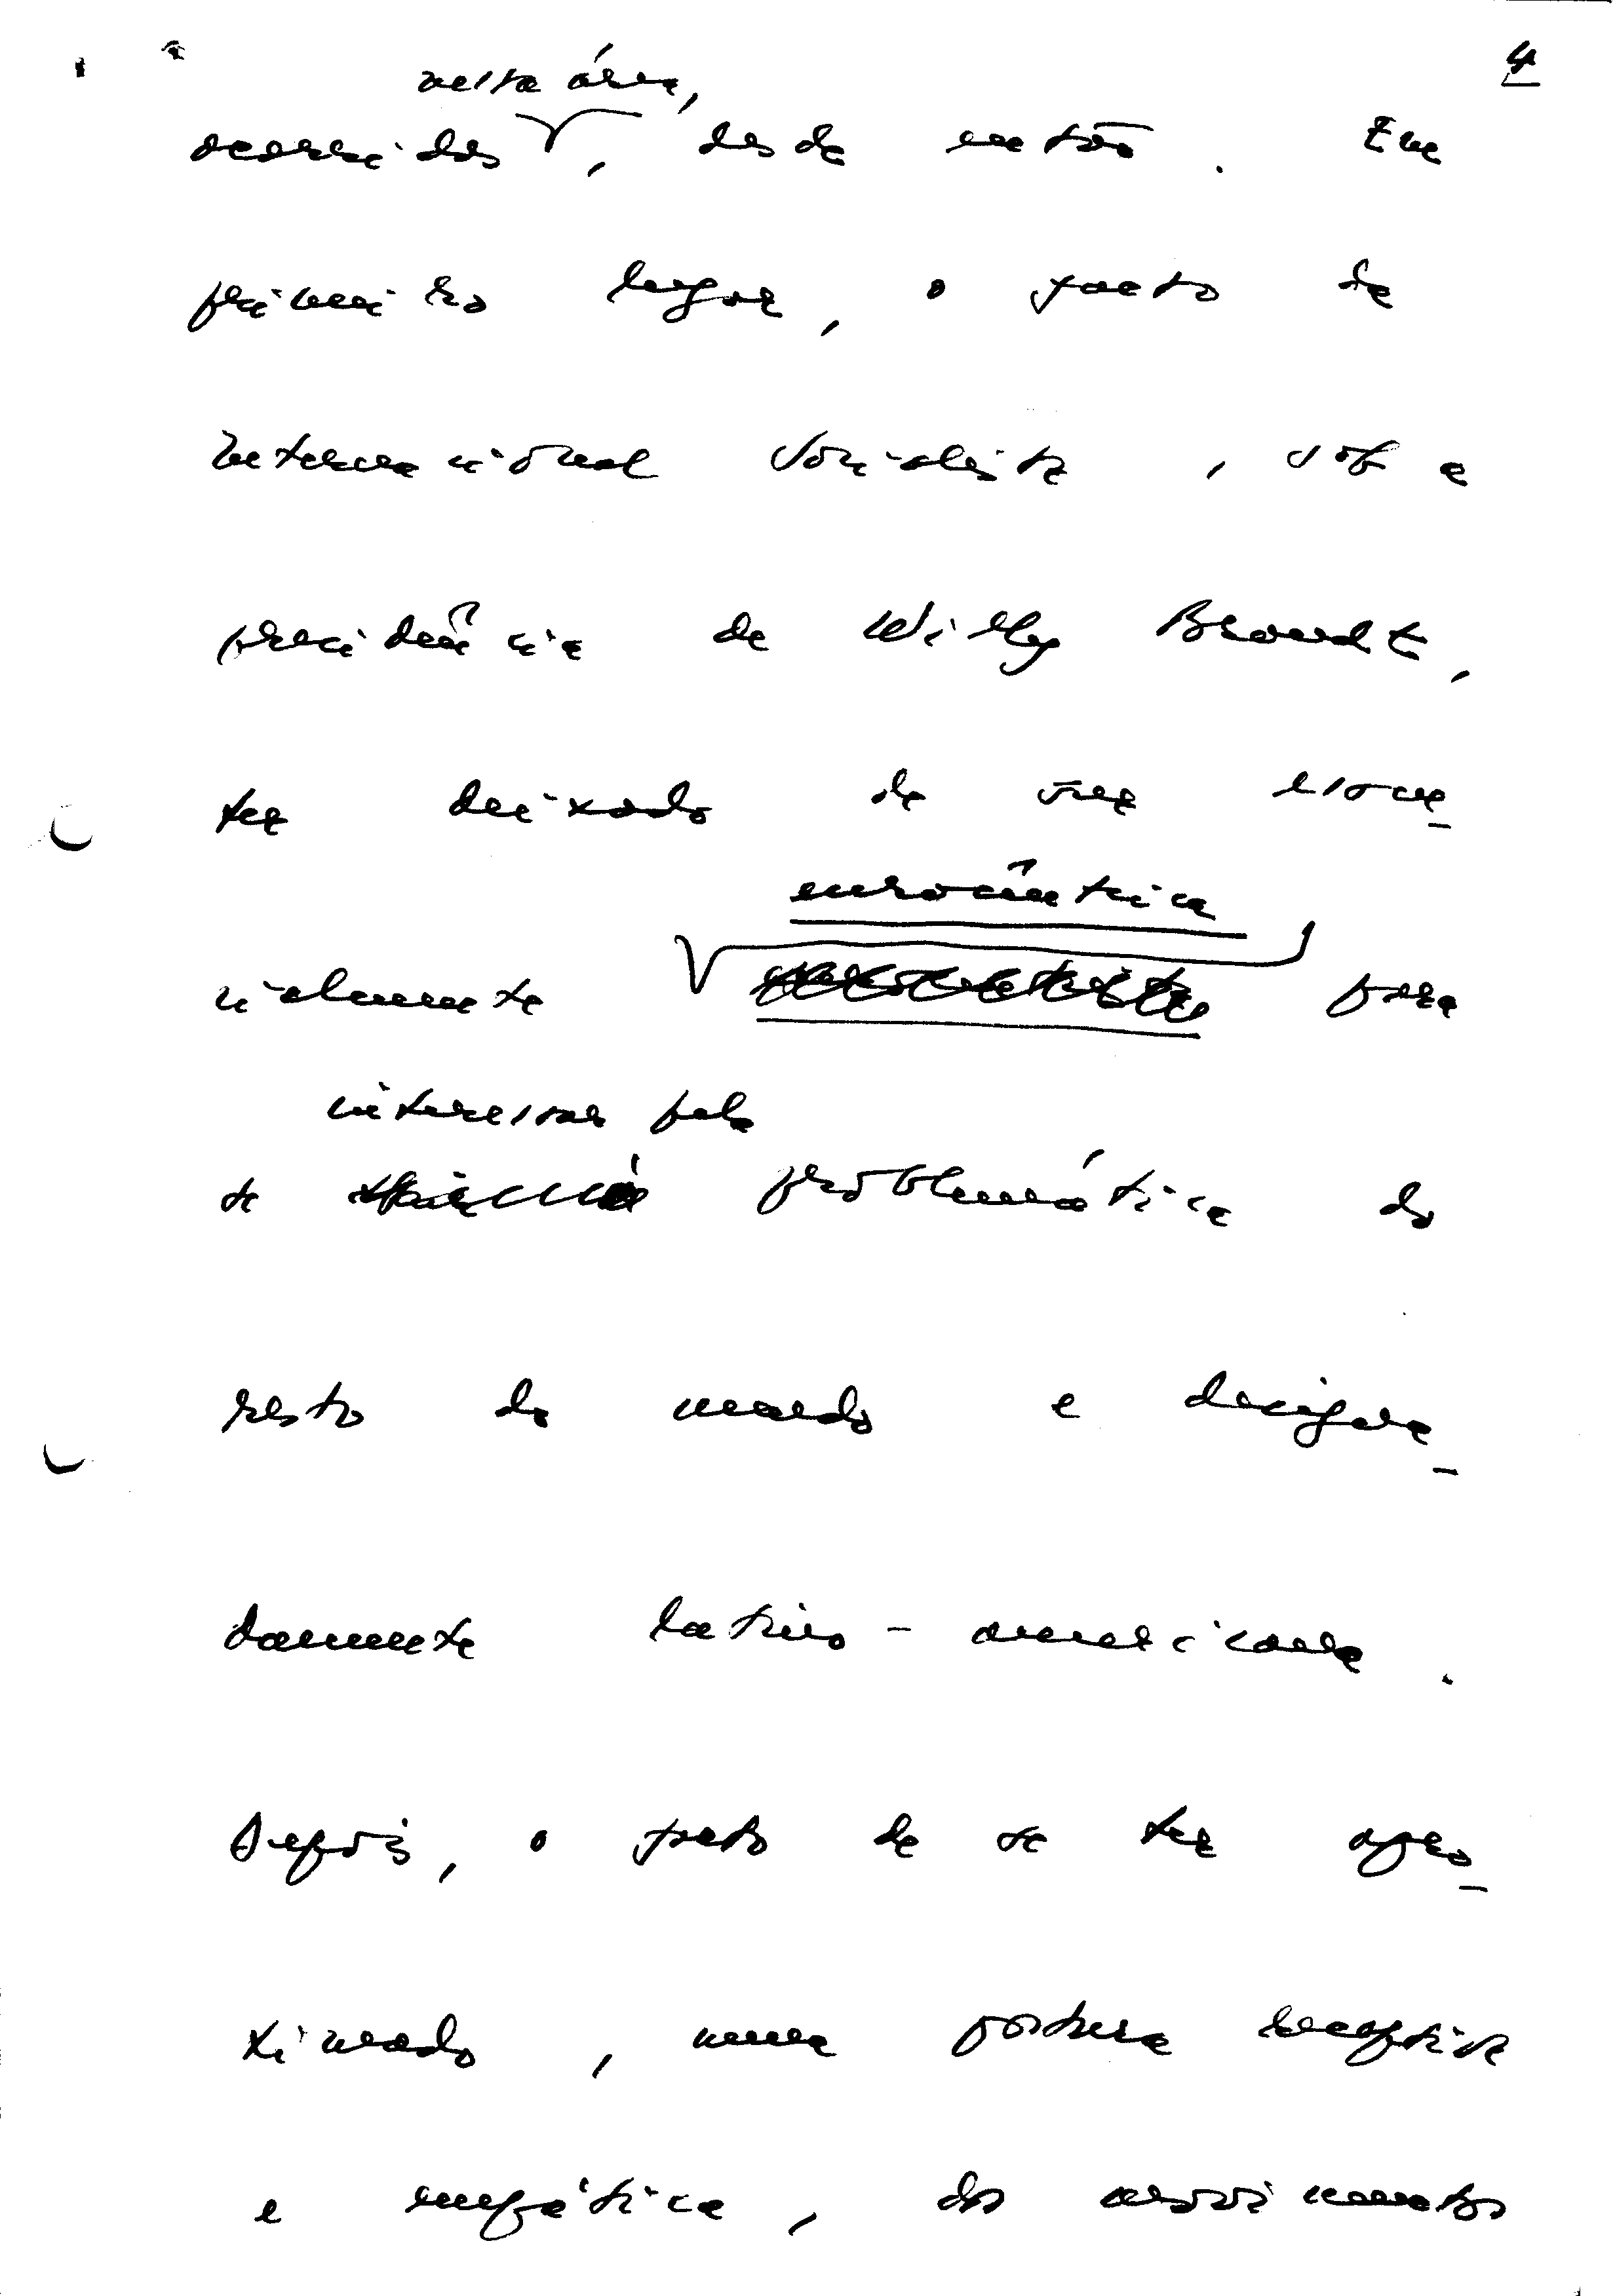 4
nesta área,
ocorridos, desde então. Em
primeiro lugar, o facto de
Internacional Socialista, sob a
presidência de Willy Brandt,
ter deixado de ser essen-
eurocêntrica
cialmente para
interessar pela
se problemática do
resto do mundo e designa-
damente latino-americana.
Depois, o facto de se ter apro-
ximado, numa postura receptiva
e empática, dos movimentos